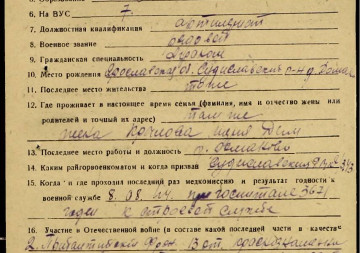 6. На ВУС 7.
7. Должностная квалификация артиллерист
8. Военное звание рядовой
9. Гражданская специальность
10. Место рождения Ярославская обл. Судиславский р-н д.
11. Последнее место жительства то же
12. Где проживает в настоящее время семья (фамилия, имя и отчество жены или
родителей и точный их адрес) там же
жена
13. Последнее место работы и должность
14. Каким райгорвоенкоматом и когда призван Судиславский РВК
15. Когда и где проходил последний раз медкомиссию и результат годности к
военной службе 8.08.44. при госпитале 3631
годен к строевой службе
16. Участие в Отечественной войне (в составе какой последней части в качестве
2 Прибалтийский фрон. 13 от.